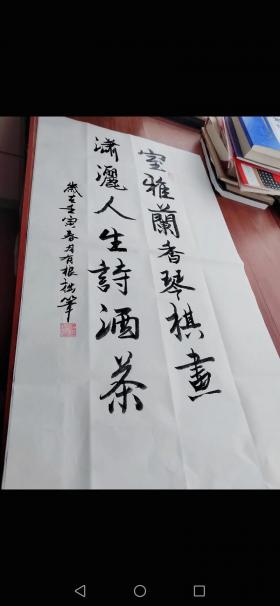 室雅蘭香琴棋畫
瀟灑人生詩酒茶
歲在壬寅春月有根拙筆